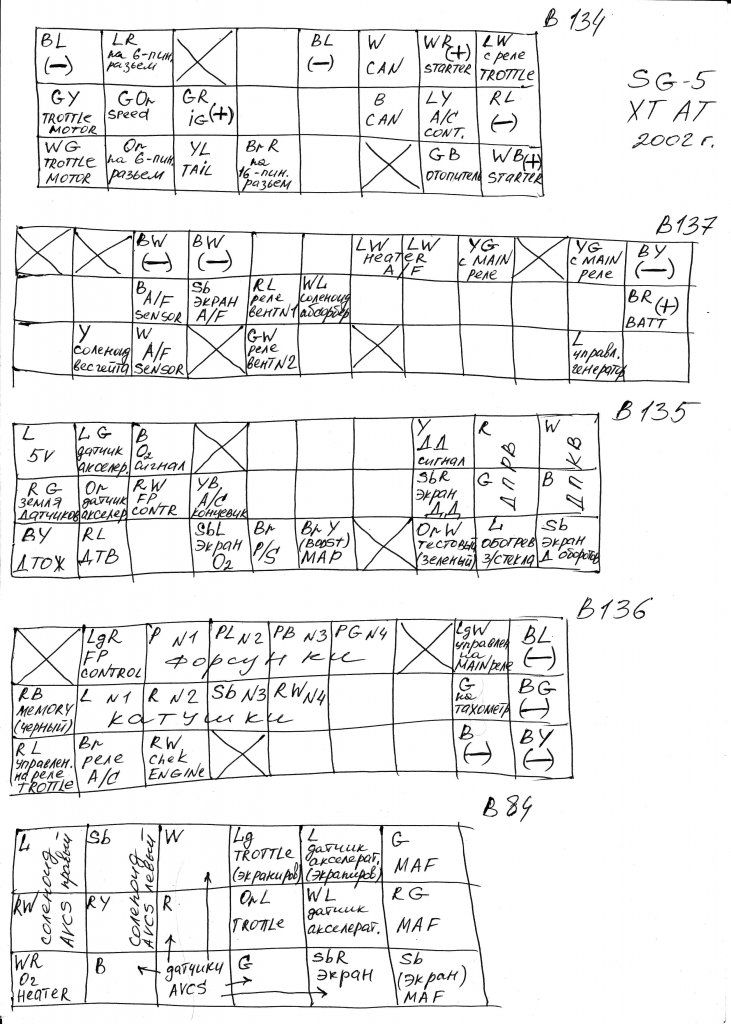 B 134
SG-5
XT AT
2002 г.
BL LR BL W WR(+) LW
(−) на 6-пин. разъем (−) CAN STARTER с реле TROTTLE
GY GOr GR B LY RL
TROTTLE MOTOR SPEED iG(+) CAN A/C CONT. (−)
WG Or YL BrR GB WB(+)
TROTTLE MOTOR на 6-пин. разьем TAIL на 16-пин. разьем отопитель STARTER
B137
BW BW LW LW YG YG BY
(−) (−) HEATER A/F с MAIN реле с MAIN реле (−)
B Sb RL WL BR(+)
A/F SENSOR ЭКРАН A/F реле вентN1 соленоид абсорбер BATT
Y W GW L
соленоид весгейта A/F SENSOR реле вентN2 управл. генератор
B135
L LG B Y R W
5V датчик акселер. O2 сигнал ДД сигнал ДПРВ ДПКВ
RG Or RW YB SbR G B
земля датчиков датчик акселер FP CONTR A/C концевик экран ДД
BY RL SbL Br BrY OrW L Sb
ДТОЖ ДТВ ЭКРАН O2 P/S (Boost) MAP тестовый (зеленый) ОБОГРЕВ З/СТЕКЛА ЭКРАН Д оборотов
B136
LgR P N1 PL N2 PB N3 PG N4 LgW BL
FP CONTROL форсунки управлен. на MAIN реле (−)
RB L N1 R N2 Sb N3 RW N4 G BG
MEMORY (черный) катушки на тахометр (−)
RL Br RW B BY
управлен. на реле TROTTLE реле A/C Chek ENGINE (−) (−)
B84
L Sb W Lg L G
соленоид AVCS правый соленоид AVCS левый TROTTLE (экраниров) датчик акселерат. (экраниров) MAF
RW RY R OrL WL RG
TROTTLE датчик акселерат. MAF
WR B датчики AVCS G SbR Sb
O2 HEATER ЭКРАН (Экран) MAF